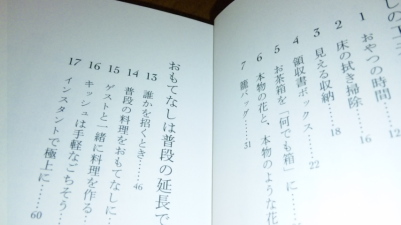 しの工
1 おやつの時間…12
2 床の拭き掃除…16
3 見える収納…18
4 領収書ボックス…22
5 お茶箱を「何でも箱」に…
6 本物の花と、本物のような花
7 籠バッグ…31
おもてなしは普段の延長で
13 誰かを招くとき…46
14 普段の料理をおもてなしに…
15 ゲストと一緒に料理を作る…
16 キッシュは手軽なごちそう…
17 インスタントで極上に…60